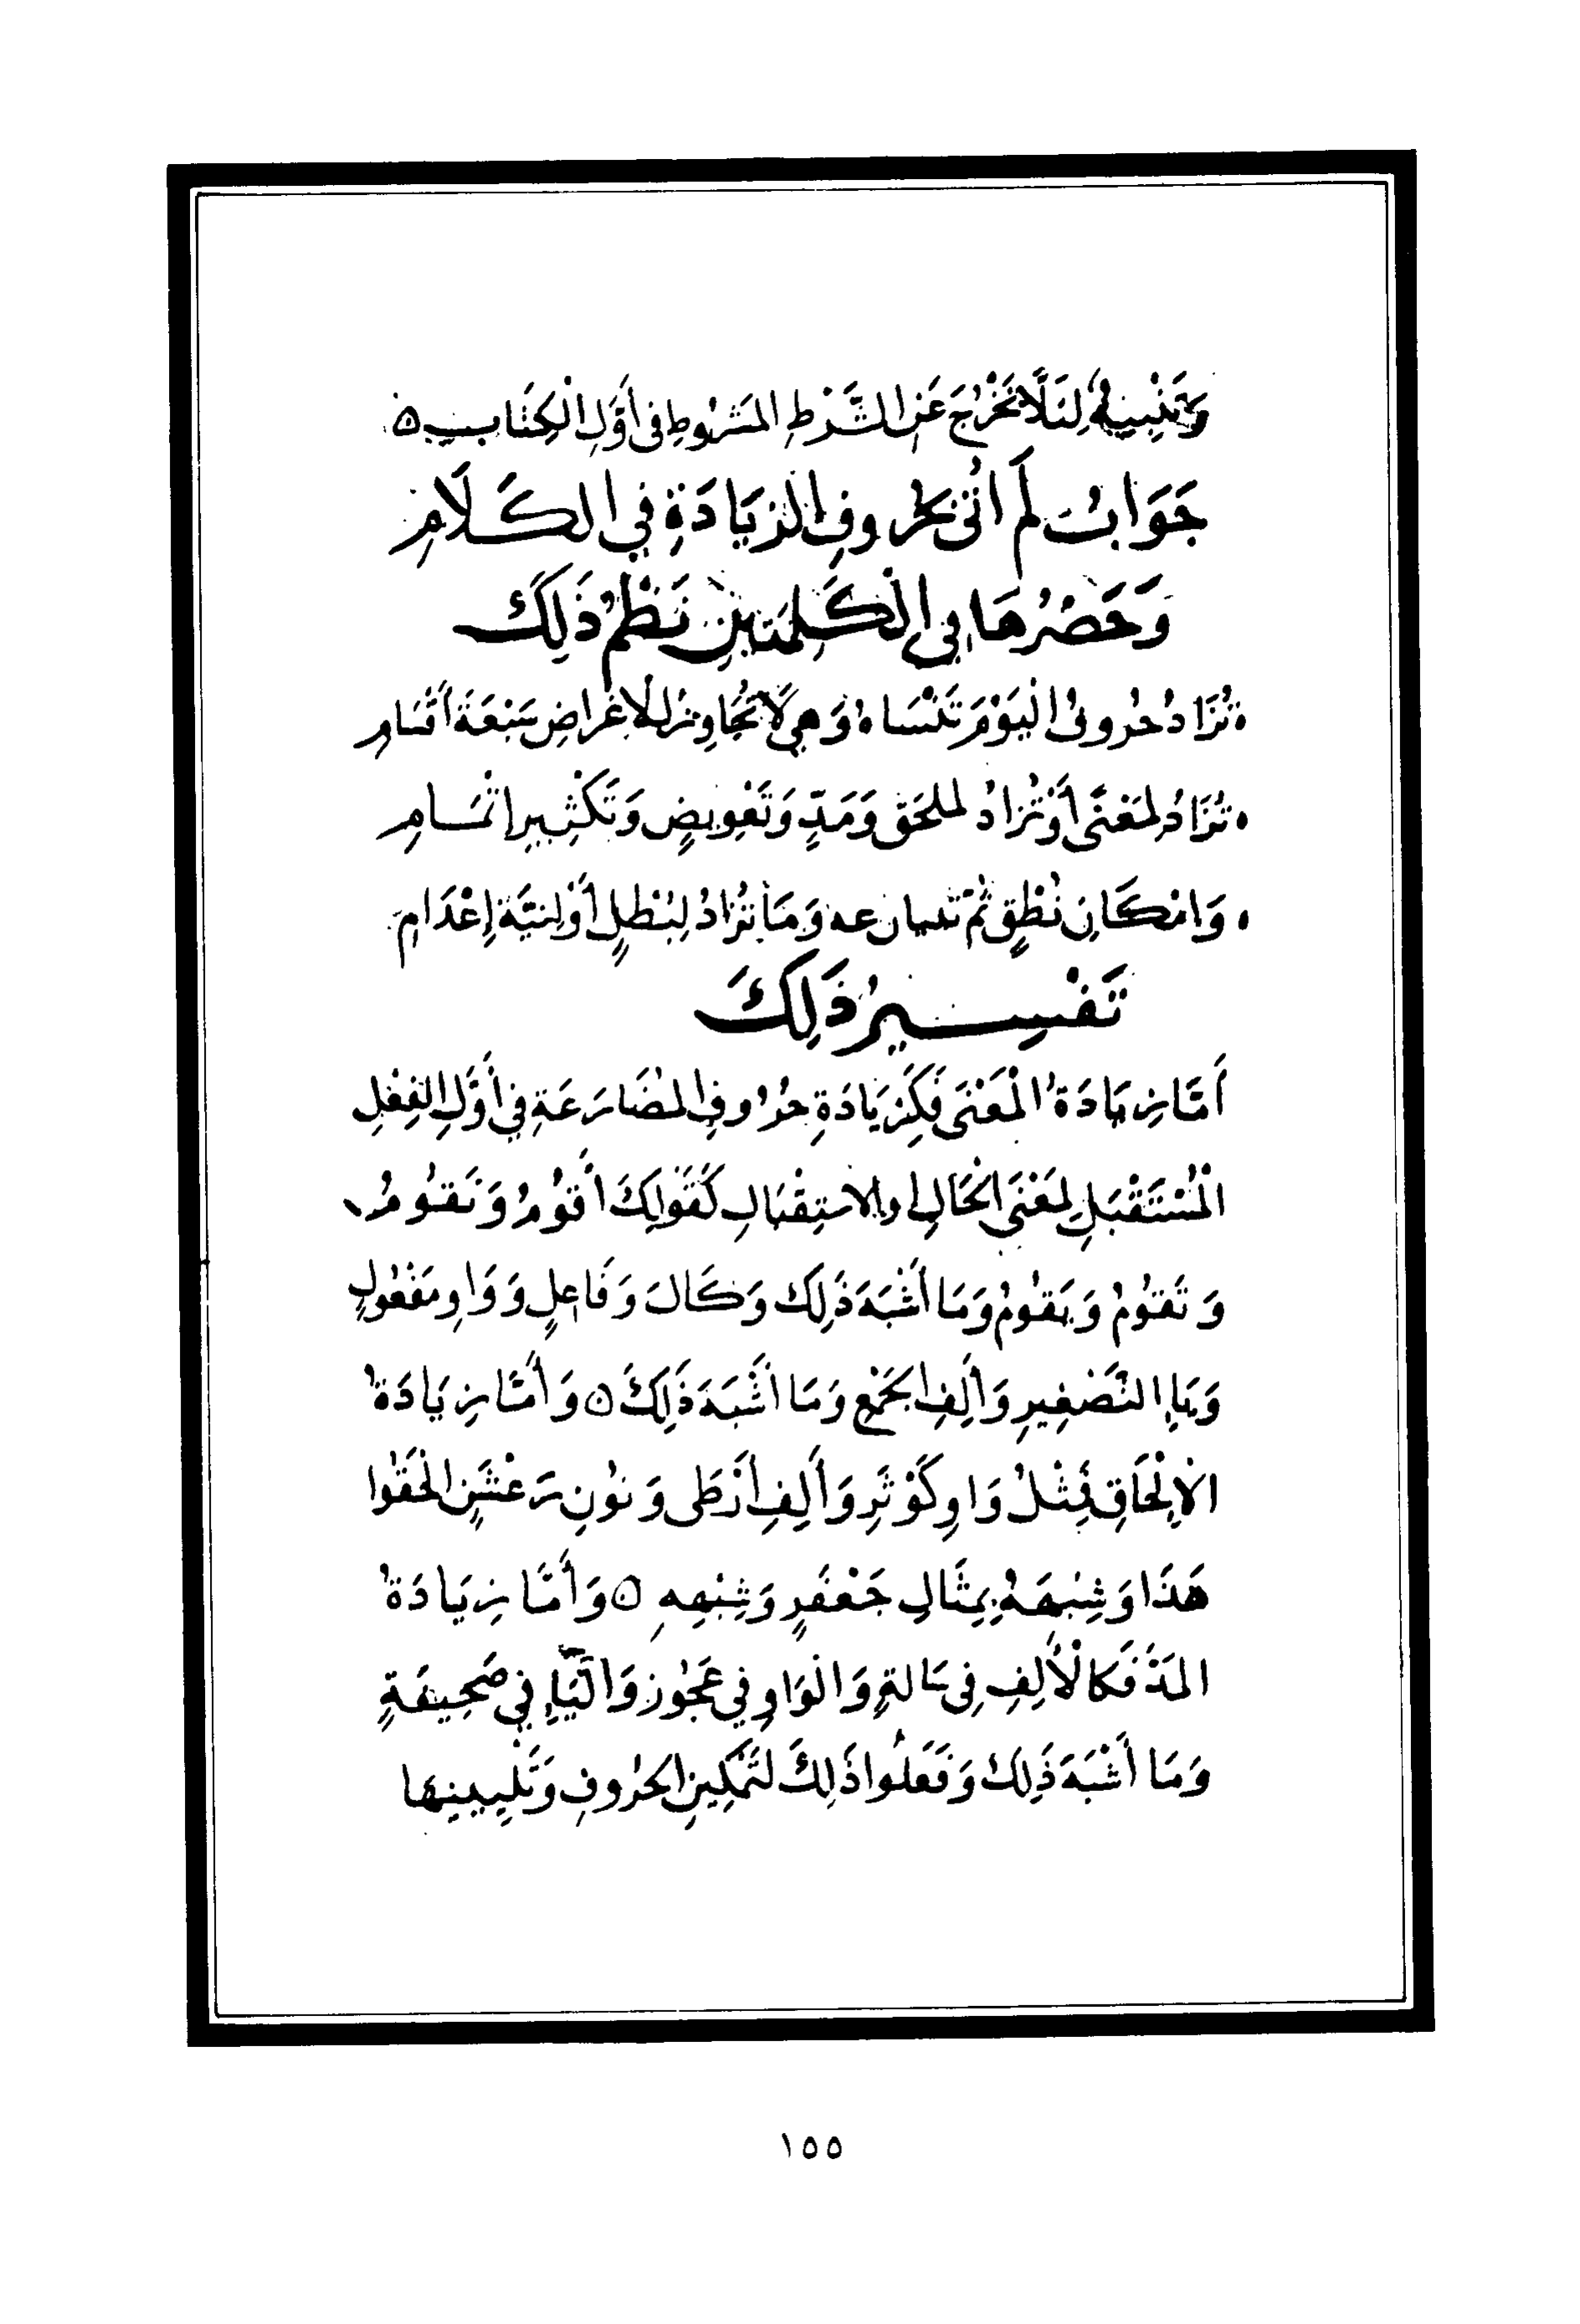 وَتَنْبِيهٌ لِئَلَّا تَخْرُجَ عَنِ الشَّرْطِ المَشْرُوطِ فِي أَوَّلِ الْكِتَابِ ه
جَوَابُ لِمَ أُتِيَ بِحُرُوفِ الزِّيَادَةِ فِي الكَلَامِ
وَحَصْرُهَا فِي الْكَلِمَتَيْنِ نَظْمُ ذَلِكَ
تُزَادُ حُرُوفُ الْيَوْمَ تَنْسَاهُ وَهِيَ لَا تُجَاوِزُ لِلْأَغْرَاضِ سَبْعَةَ أَقْسَامِ
تُزَادُ لِمَعْنًى أَوْ تُزَادُ لملحَق وَمَدٍّ وَتَعْوِيضٍ وَتَكْثِيرِ اتْمَامِ
وَامْكَانِ نُطْقٍ ثُمَّ تبيان عه وَمَا تُزَادُ لِبُطْلٍ أَوَّلِيَّةَ إِعْدَامِ
تَفْسِيرُ ذَلِكَ
أَمَّا زِيَادَةُ الْمَعْنَى فَكَزِيَادَةِ حُرُوفِ المُضَارَعَةِ فِي أَوَّلِ الفِعْلِ
الْمُسْتَقْبَلِ لِمَعْنَى الْحَالِ اوِ الاسْتِقْبَالِ كَقَوْلِكَ أَقُومُ وَنَقُومُ
وَتَقُومُ وَيَقُومُ وَمَا أَشْبَهَ ذَلِكَ وَكَالَفِ فَاعِلٍ وَوَاوِ مَفْعُولٍ
وَيَاءِ التَّصْغِيرِ وَأَلِفِ الجَمْعِ وَمَا أَشْبَهَ ذَلِكَ ه وَأَمَّا زِيَادَةُ
الْإِلْحَاقِ فَمِثْلُ وَاوِ كَوْثَرِ وَأَلِفِ أَرْطَى وَنُونِ رَعْشَنٍ الْحَقُوا
هَذَا وَشِبْهَهُ بِمِثَالِ جَعْفَرٍ وَشِبْهِهِ ه وَأَمَّا زِيَادَةُ
المَدِّ فَكَالْأَلِفِ فِي رِسَالَةٍ وَالْوَاوِ فِي عَجُوز وَالْيَاءِ فِي صَحِيفَةٍ
وَمَا أَشْبَهَ ذَلِكَ وَفَعَلُوا ذَلِكَ لِتَمْكِينِ الحُرُوفِ وَتَلْيِينِهَا
١٥٥